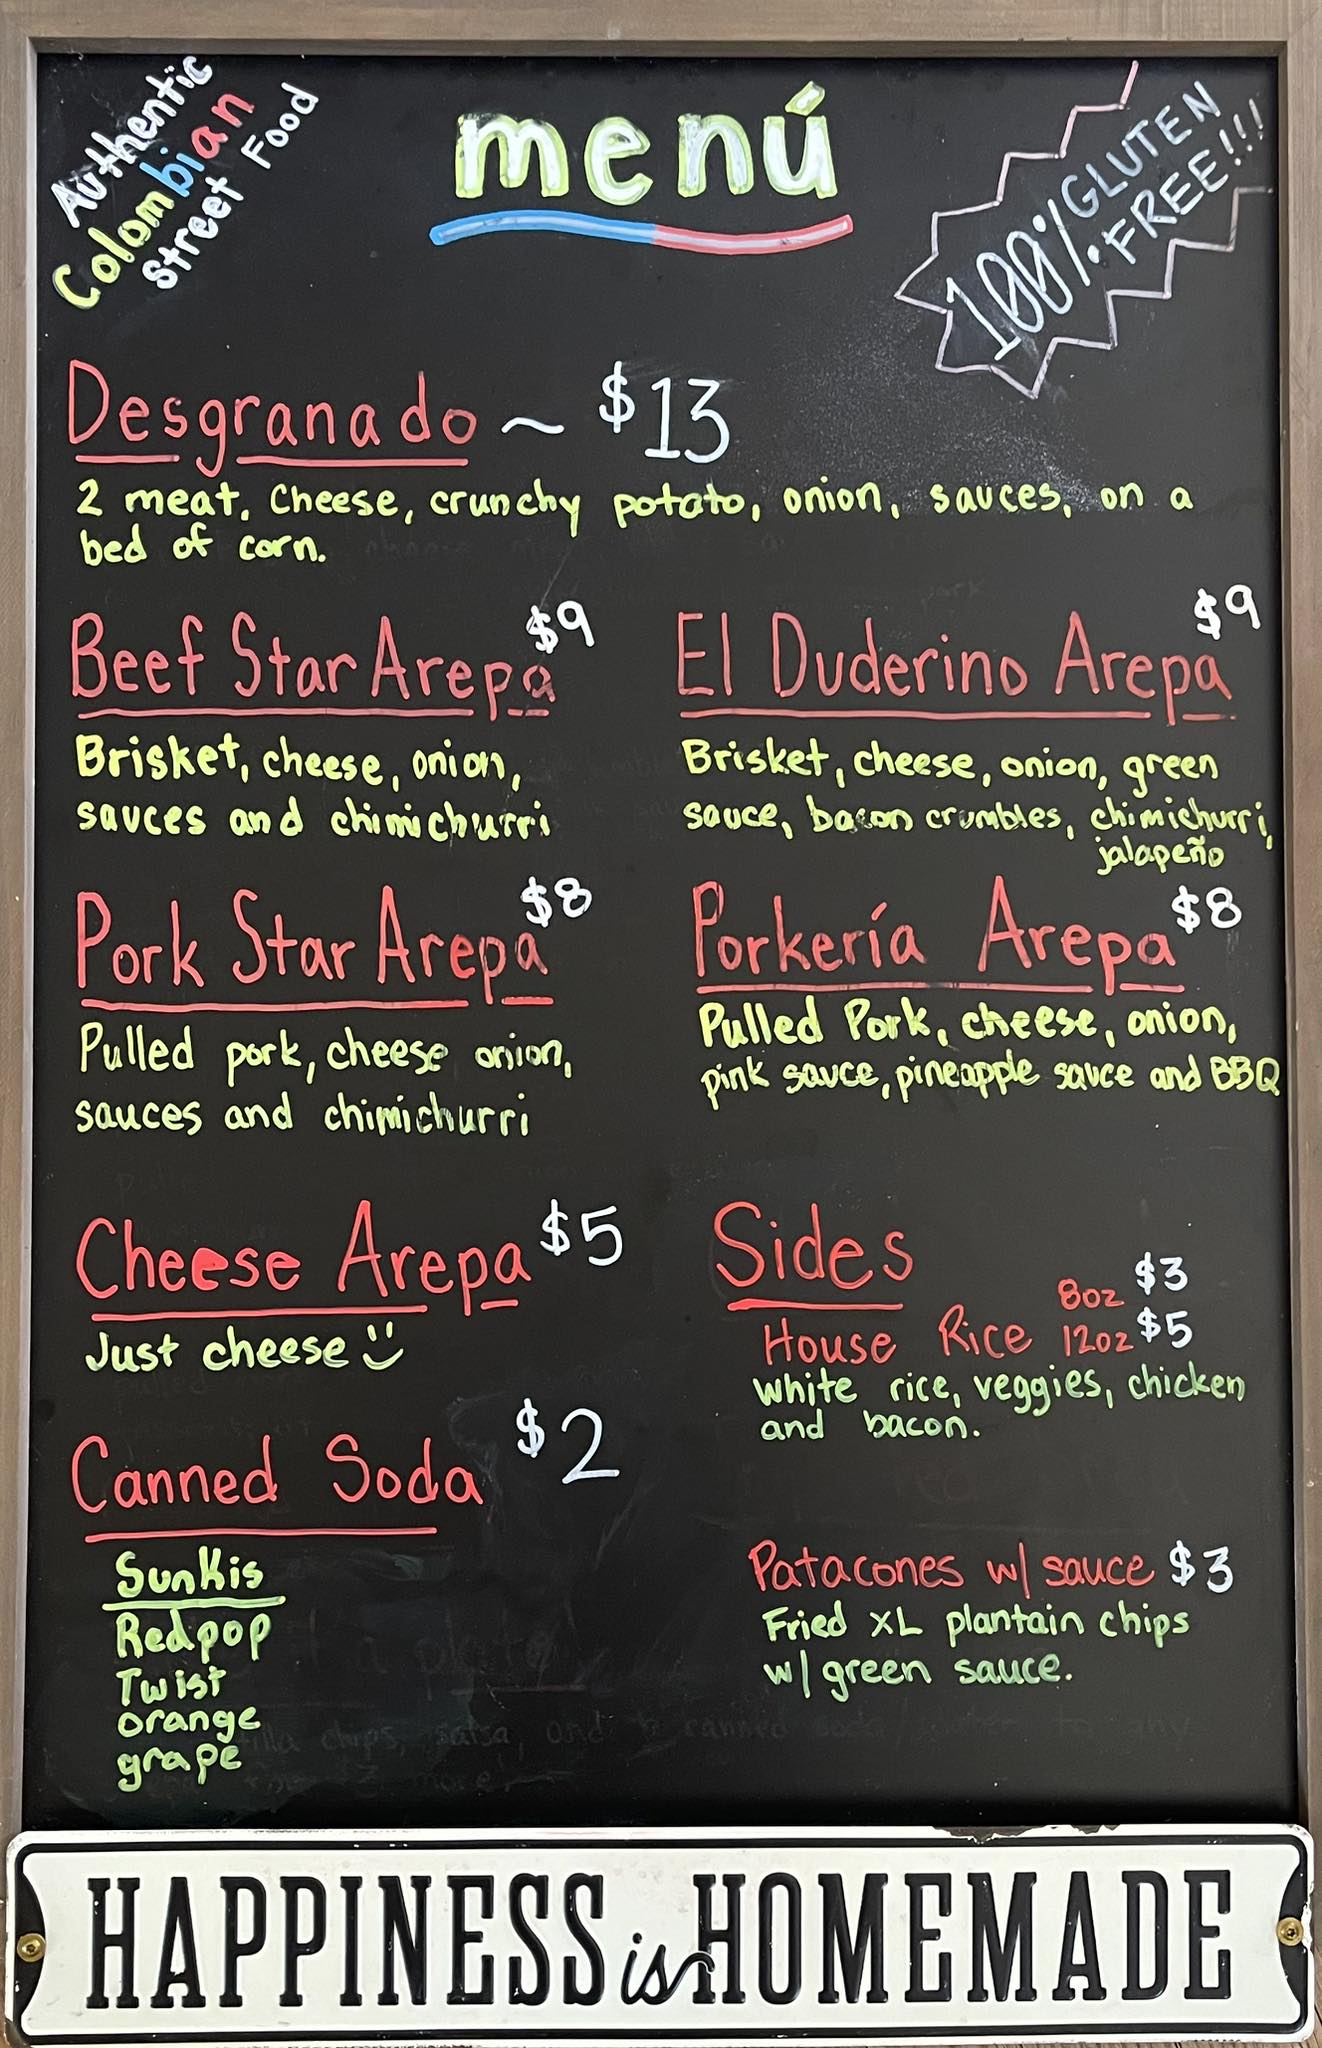 Authentic
Colombian
Street Food
menú
100% GLUTEN
FREE!!!
Desgranado ~ $13
2 meat, cheese, crunchy potato, onion, sauces, on a
bed of corn.
Beef Star Arepa $9
Brisket, cheese, onion,
sauces and chimichurri
El Duderino Arepa $9
Brisket, cheese, onion, green
sauce, bacon crumbles, chimichurri,
jalapeño
Pork Star Arepa $8
Pulled pork, cheese onion,
sauces and chimichurri
Porkería Arepa $8
Pulled Pork, cheese, onion,
pink sauce, pineapple sauce and BBQ
Cheese Arepa $5
Just cheese
Canned Soda $2
Sunkis
Redpop
Twist
orange
grape
Sides
House Rice 8oz $3
12oz $5
white rice, veggies, chicken
and bacon.
Patacones w/ sauce $3
Fried XL plantain chips
w/ green sauce.
HAPPINESS is HOMEMADE